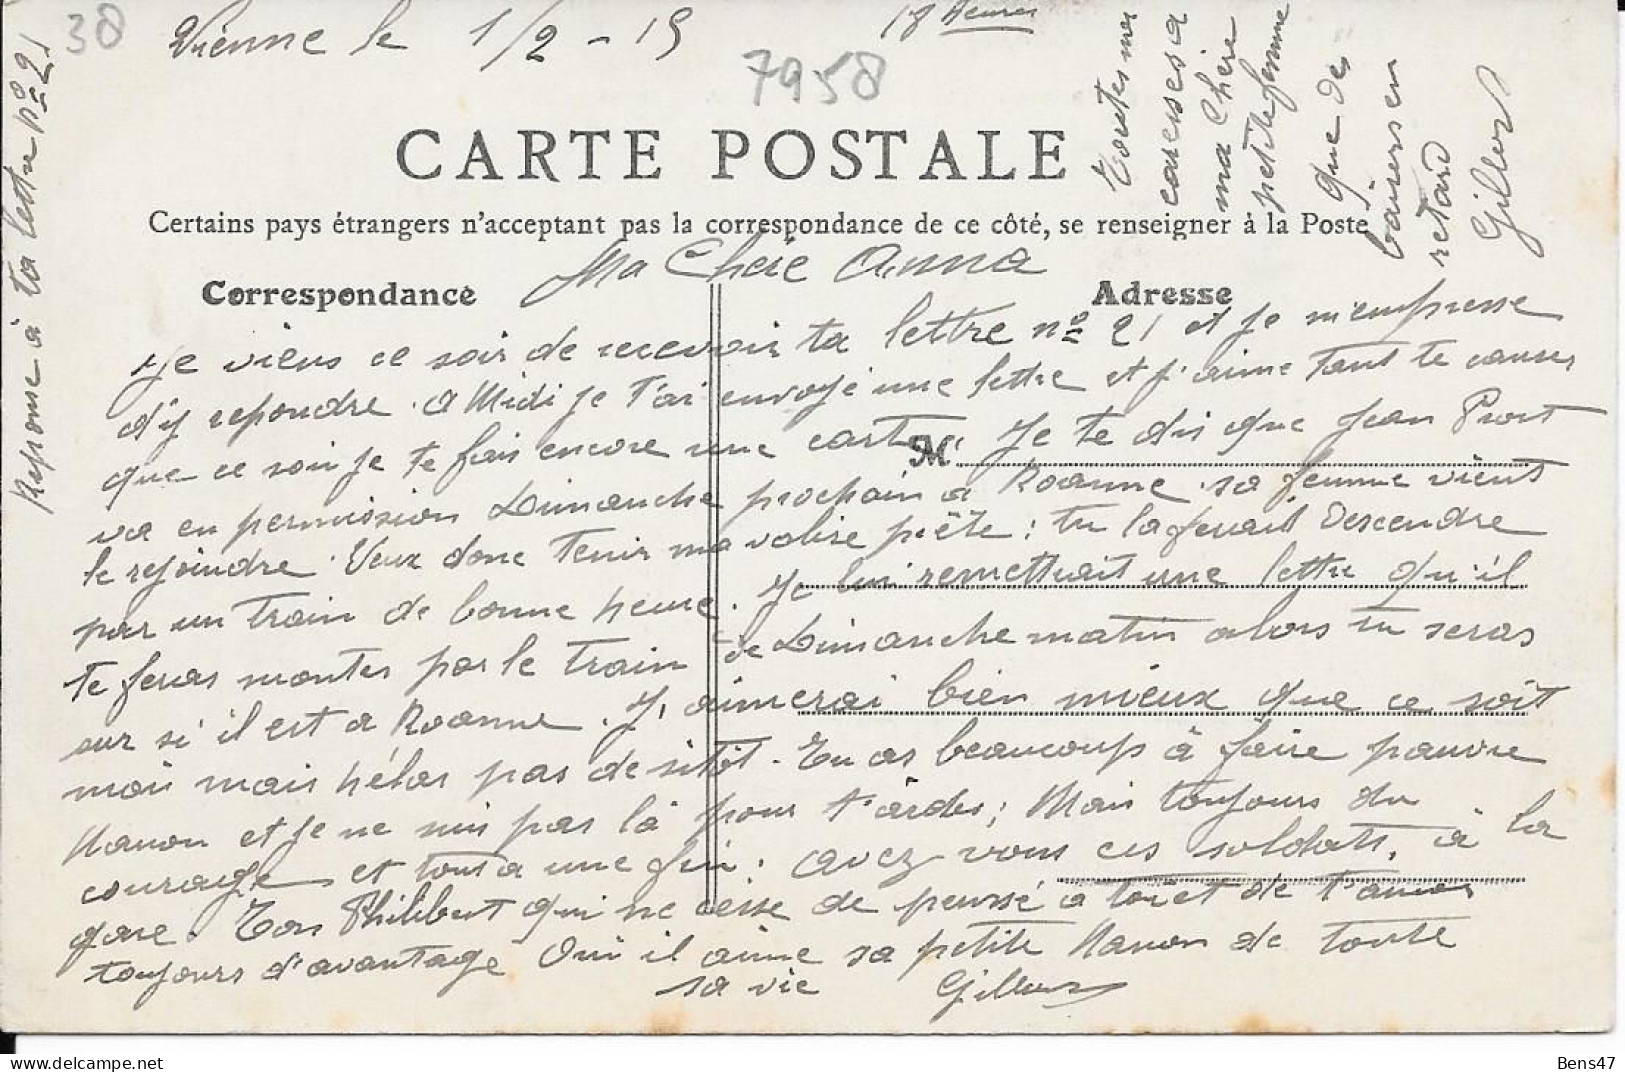 38
Vienne le 1/2 - 15
18 Heures
7958
Reponse à ta lettre nº 21
CARTE POSTALE
Certains pays étrangers n'acceptant pas la correspondance de ce côté, se renseigner à la Poste
Correspondance
Adresse
M
Ma Chere Anna
Je viens ce soir de recevoir ta lettre nº 21 et je m'empresse
d'y repondre. a Midi je t'ai envoyé une lettre et j'aime tant te causer
que ce soir je te fais encore une carte. Je te dis que Jean Prost
va en permission Dimanche prochain a Roanne. sa femme vient
le rejoindre. Veux donc tenir ma valise prête: tu la ferait Descendre
par un train de bonne heure. Je lui remettrait une lettre qu'il
te feras monter par le train de Dimanche matin alors tu seras
sur si il est a Roanne. J'aimerai bien mieux que ce soit
moi mais hélas pas de sitôt. Tu as beaucoup à faire pauvre
Nanon et je ne suis pas là pour t'aider; Mais toujours du
courage et tout a une fin. avez vous ces soldats, à la
gare. Ton Philibert qui ne cesse de pensé a toi et de t'aimer
toujours d'avantage Oui il aime sa petite Nanon de toute
sa vie
Toutes mes
caresses a
ma Chere
petite femme
que des
baisers en
retard